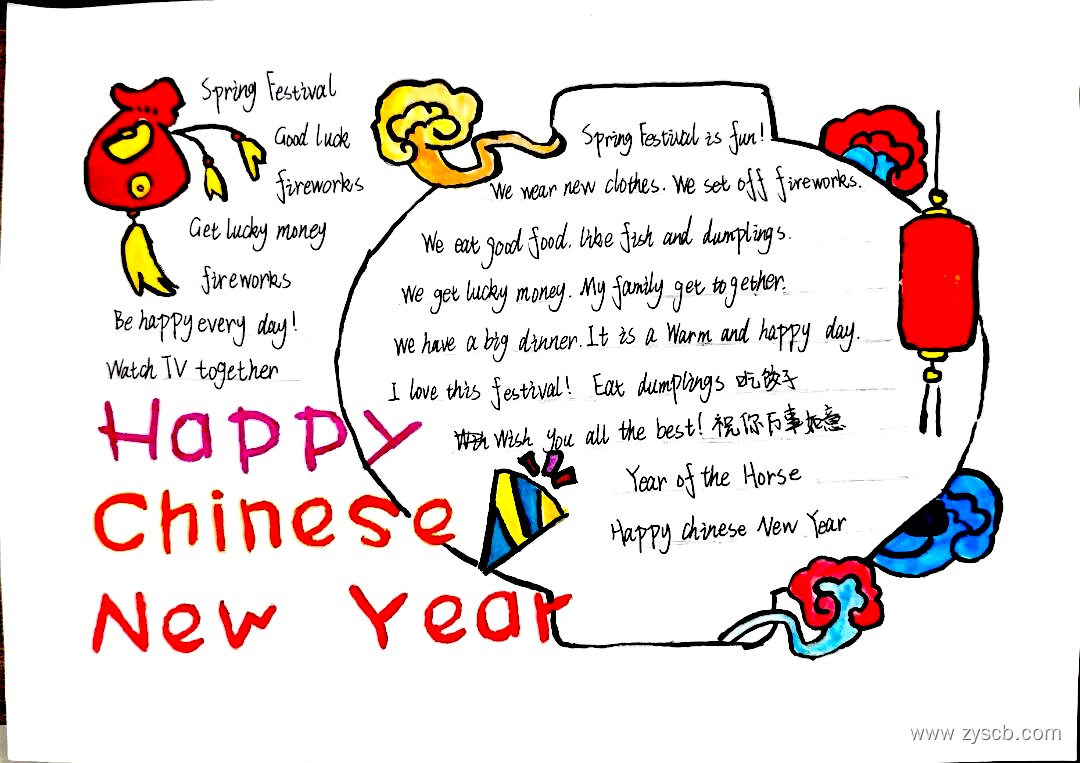 Spring Festival
Good luck
fireworks
Get lucky money
fireworks
Be happy every day!
Watch TV together
Happy
Chinese
New Year
Spring Festival is fun!
We wear new clothes. We set off fireworks.
We eat good food. like fish and dumplings.
We get lucky money. My family get together.
We have a big dinner. It is a Warm and happy day.
I love this festival! Eat dumplings 吃饺子
Wish you all the best! 祝你万事如意
Year of the Horse
Happy chinese New Year
www.zyscb.com